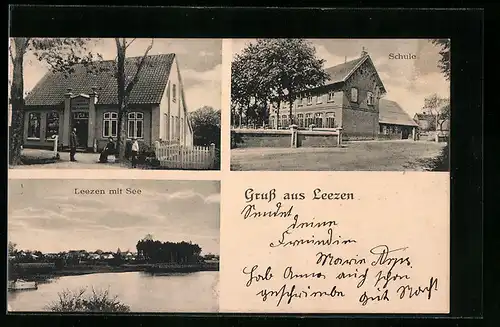 Schule
Leezen mit See
Gruß aus Leezen
Sendet deine
Freundin
Marie
hab Anna auch schon
geschrieben Gut Nacht